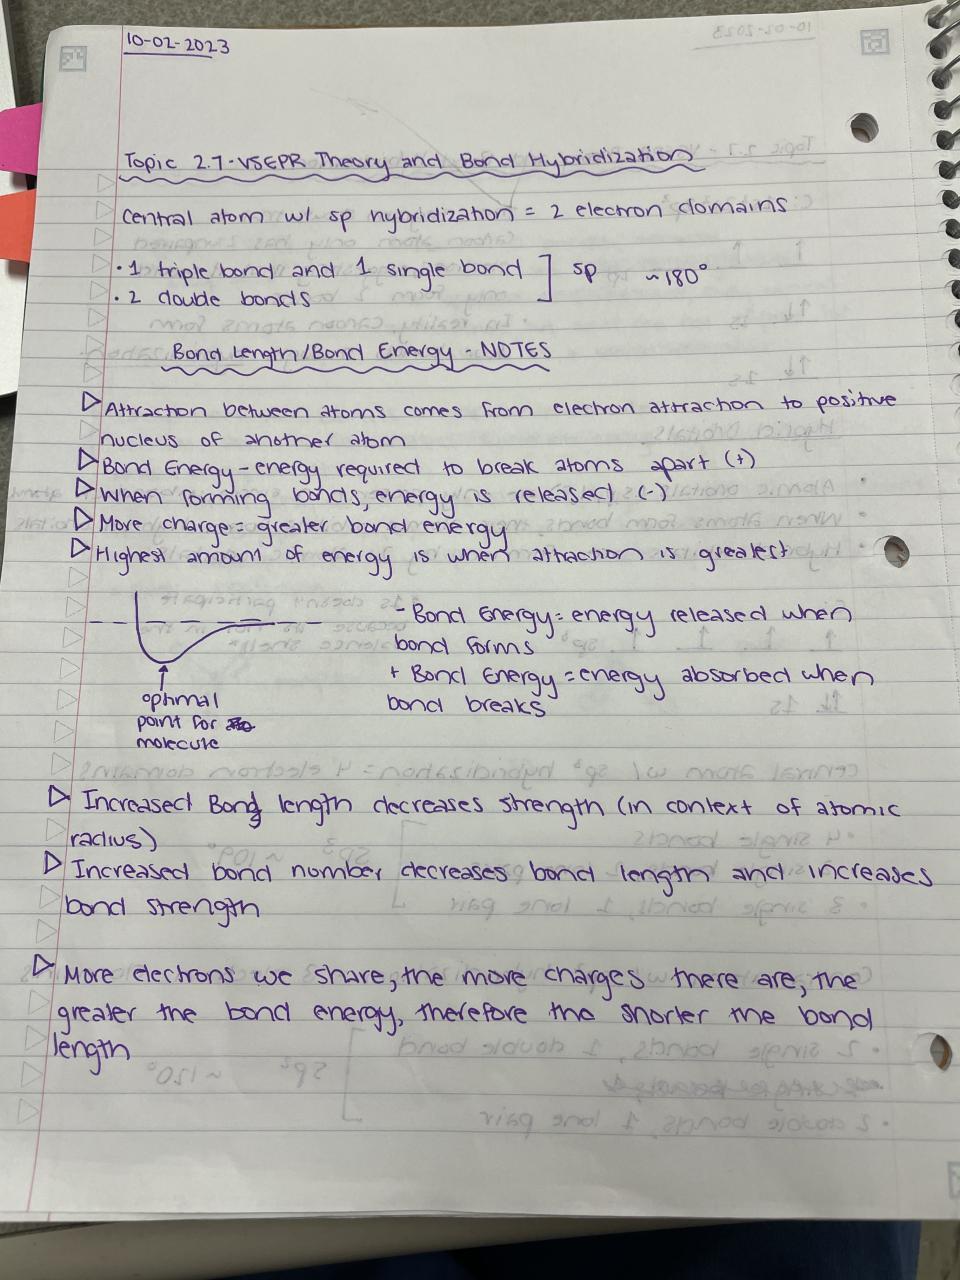 10-02-2023
Topic 2.7-VSEPR Theory and Bond Hybridization
Central atom w/ sp hybridization = 2 electron domains
• 1 triple bond and 1 single bond ] sp ~180°
• 2 double bonds
Bond Length/Bond Energy - NOTES
▷ Attraction between atoms comes from electron attraction to positive
nucleus of another atom
▷ Bond Energy - energy required to break atoms apart (+)
▷ When forming bonds, energy is released (-)
▷ More charge = greater bond energy
▷ Highest amount of energy is when attraction is greatest
- Bond Energy = energy released when
bond forms
+ Bond Energy = energy absorbed when
bond breaks
optimal
point for
molecule
▷ Increased Bond length decreases strength (in context of atomic
radius)
▷ Increased bond number decreases bond length and increases
bond strength
▷ More electrons we share, the more charges there are, the
greater the bond energy, therefore the shorter the bond
length